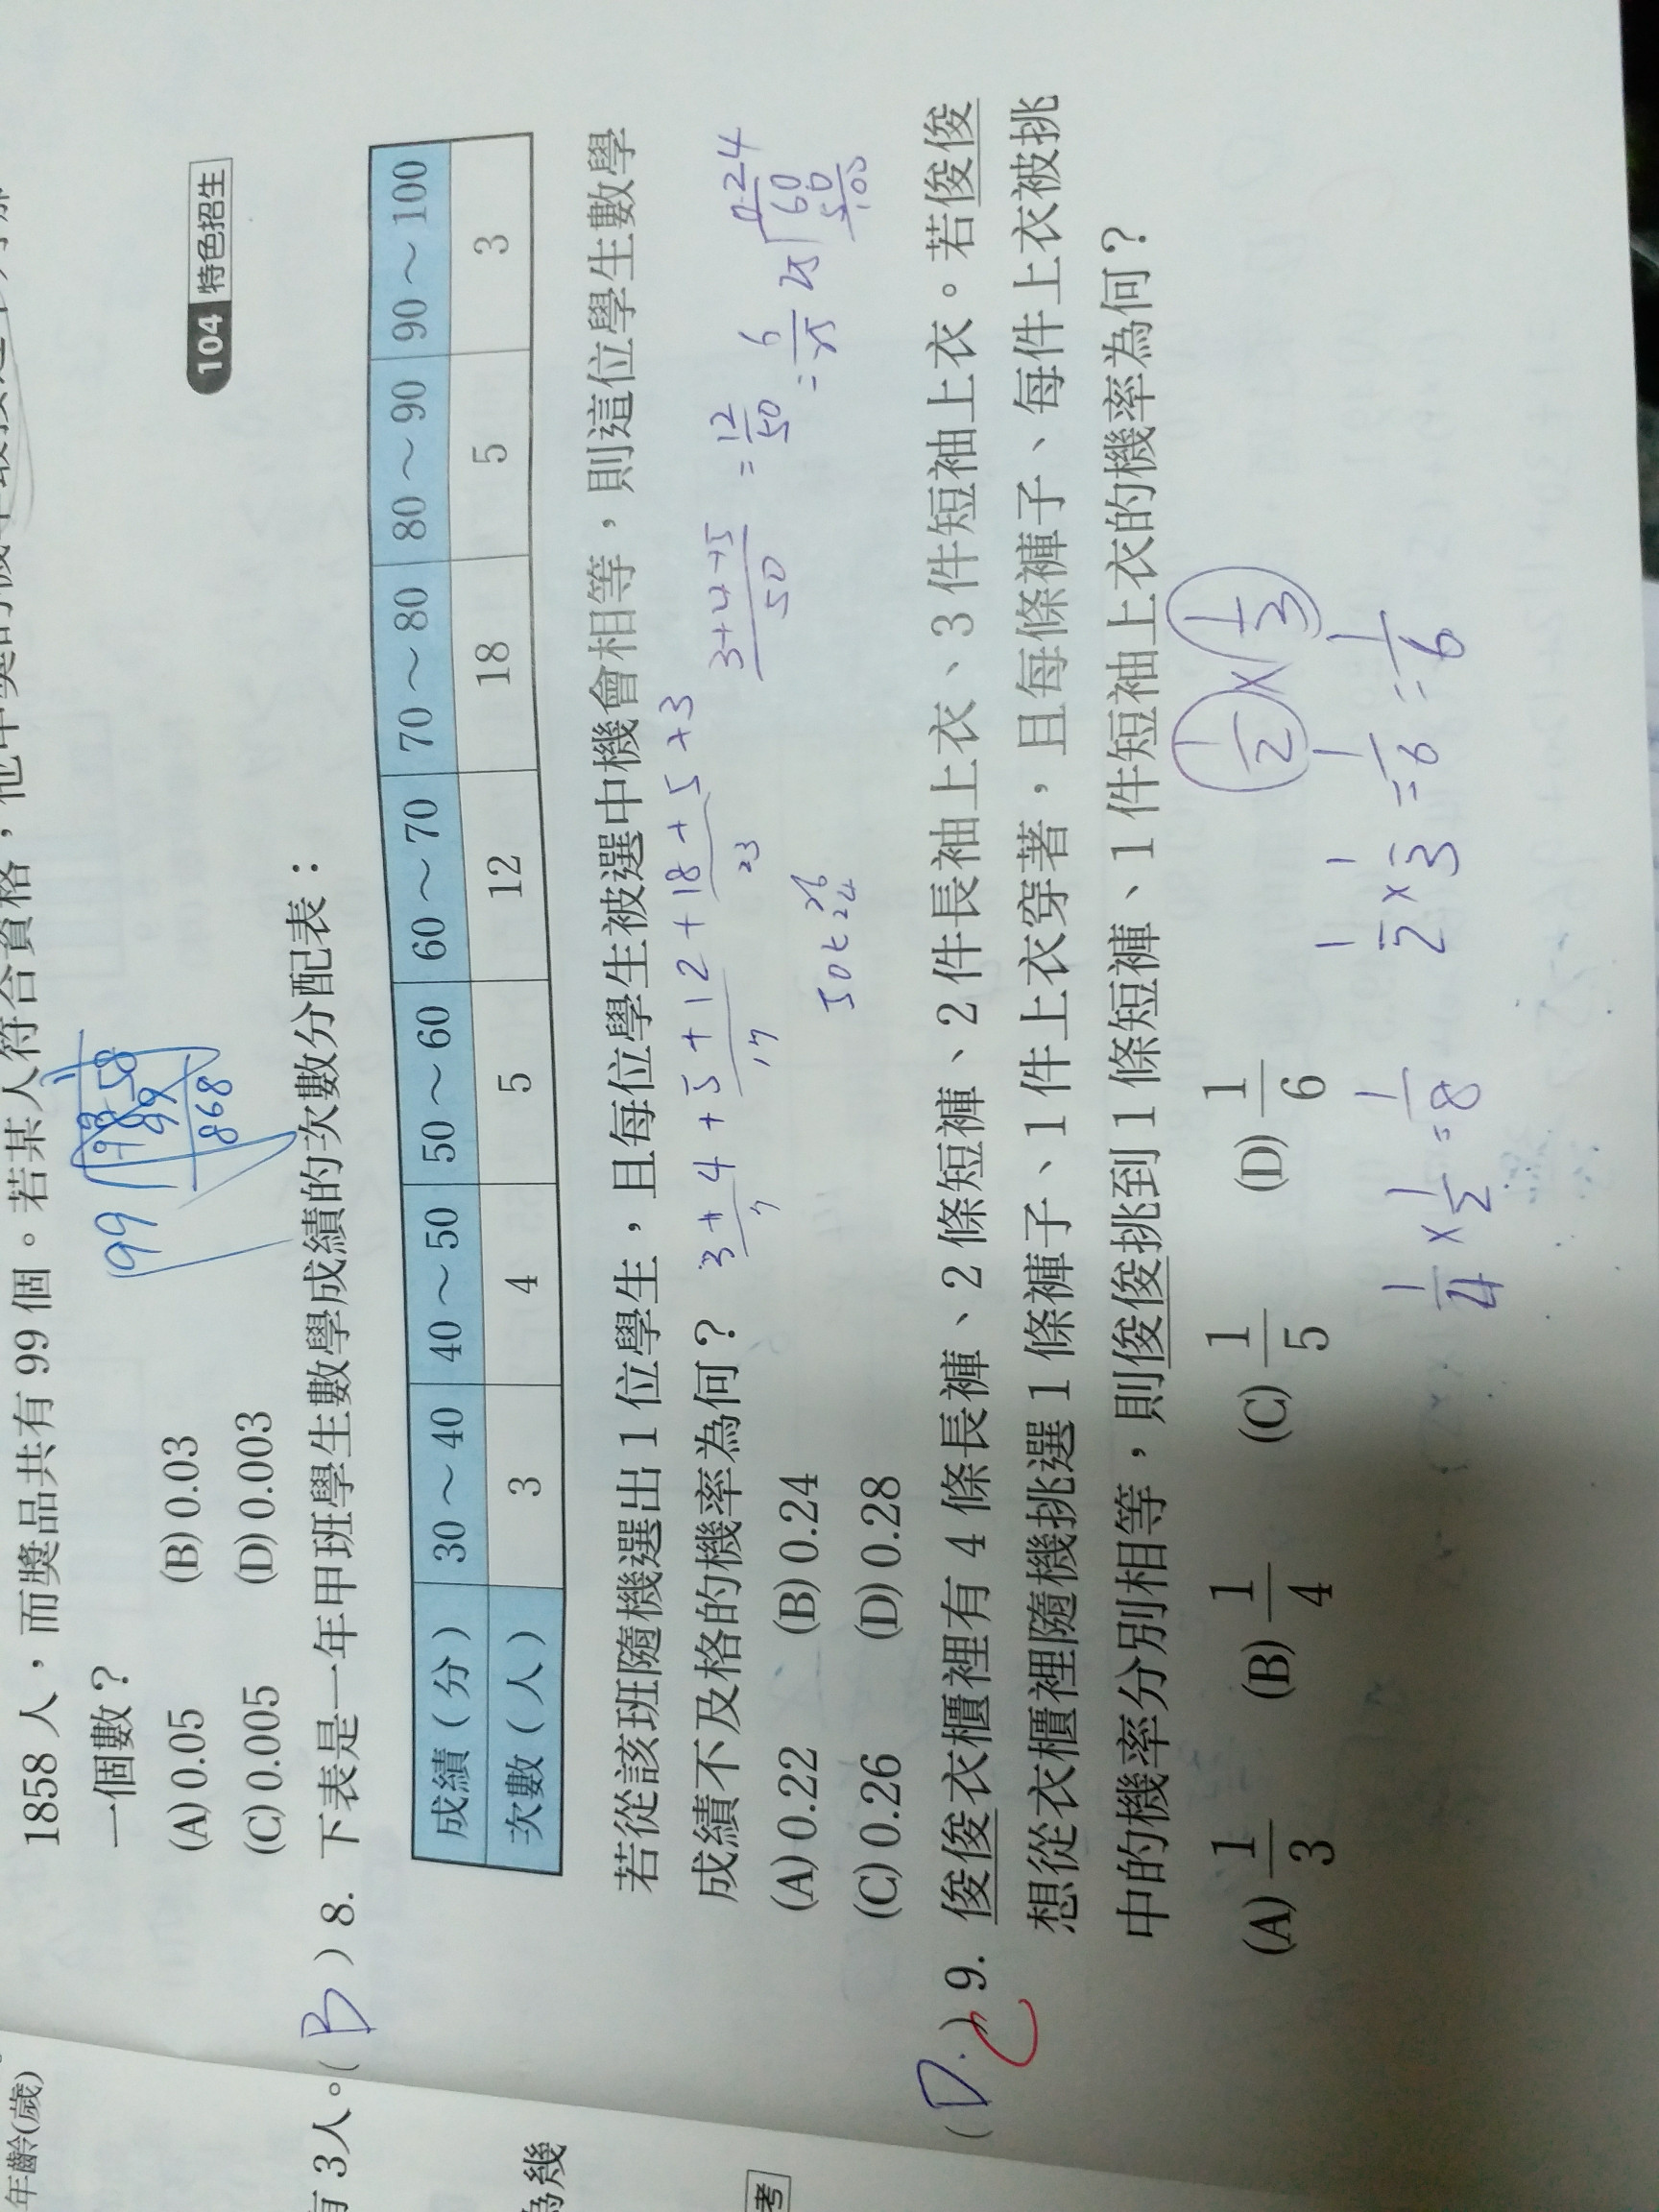 1858 人，而獎品共有 99 個。若某人符合資格，他中獎的機率最接近
一個數？
(A) 0.05 (B) 0.03
(C) 0.005 (D) 0.003
99
868
104 特色招生
年齡(歲)
有 3人。
為幾
考
( B ) 8. 下表是一年甲班學生數學成績的次數分配表：
成績（分） 30～40 40～50 50～60 60～70 70～80 80～90 90～100
次數（人） 3 4 5 12 18 5 3
若從該班隨機選出 1 位學生，且每位學生被選中機會相等，則這位學生數學
成績不及格的機率為何？
3+4+5+12+18+5+3
7 17 23
(A) 0.22 (B) 0.24
(C) 0.26 (D) 0.28
3+4+5/50 = 12/50 = 6/25
0.24
25 60
50
100
( D ) 9. 俊俊衣櫃裡有 4 條長褲、2 條短褲、2 件長袖上衣、3 件短袖上衣。若俊俊
想從衣櫃裡隨機挑選 1 條褲子、1 件上衣穿著，且每條褲子、每件上衣被挑
中的機率分別相等，則俊俊挑到 1 條短褲、1 件短袖上衣的機率為何？
(A) 1/3 (B) 1/4 (C) 1/5 (D) 1/6
1/2 × 1/3
1/4 × 1/2 = 1/8
1/2 × 1/3 = 1/6 = 1/6